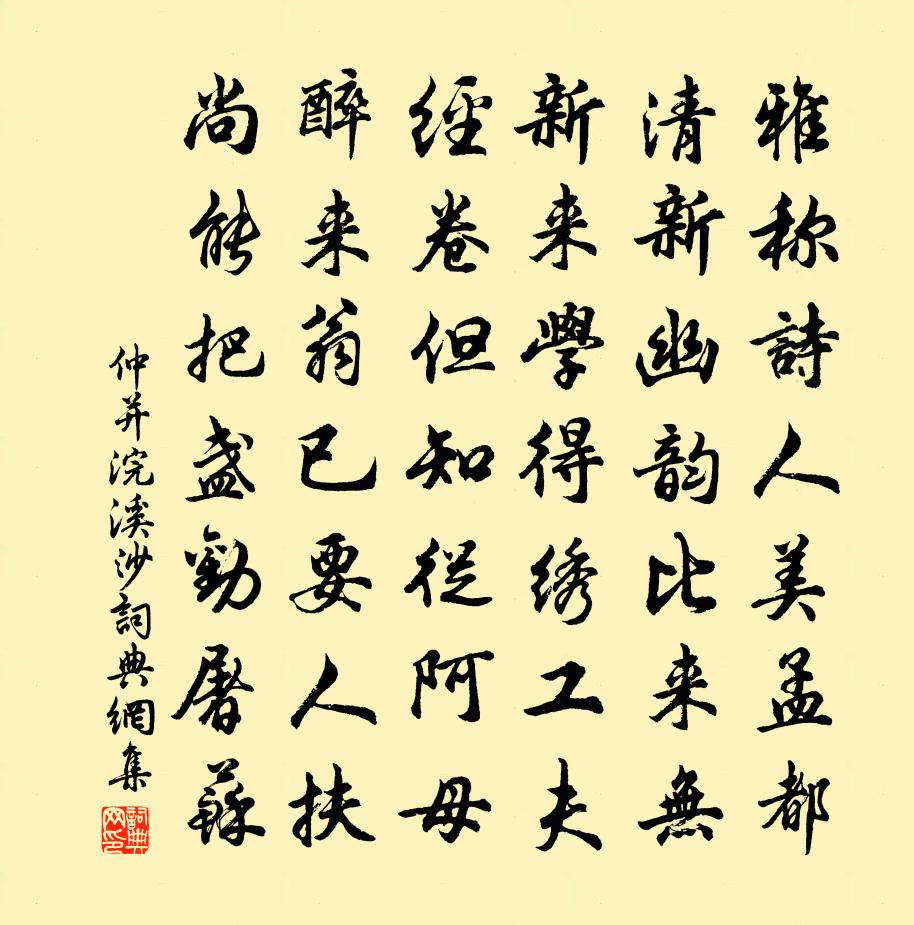 雅称詩人美孟都
清新幽韵比来無
新来學得绣工夫
經卷但知從阿母
醉来翁已要人扶
尚能把盏勸屠蘇
仲并浣溪沙詞典網集
詞典网印